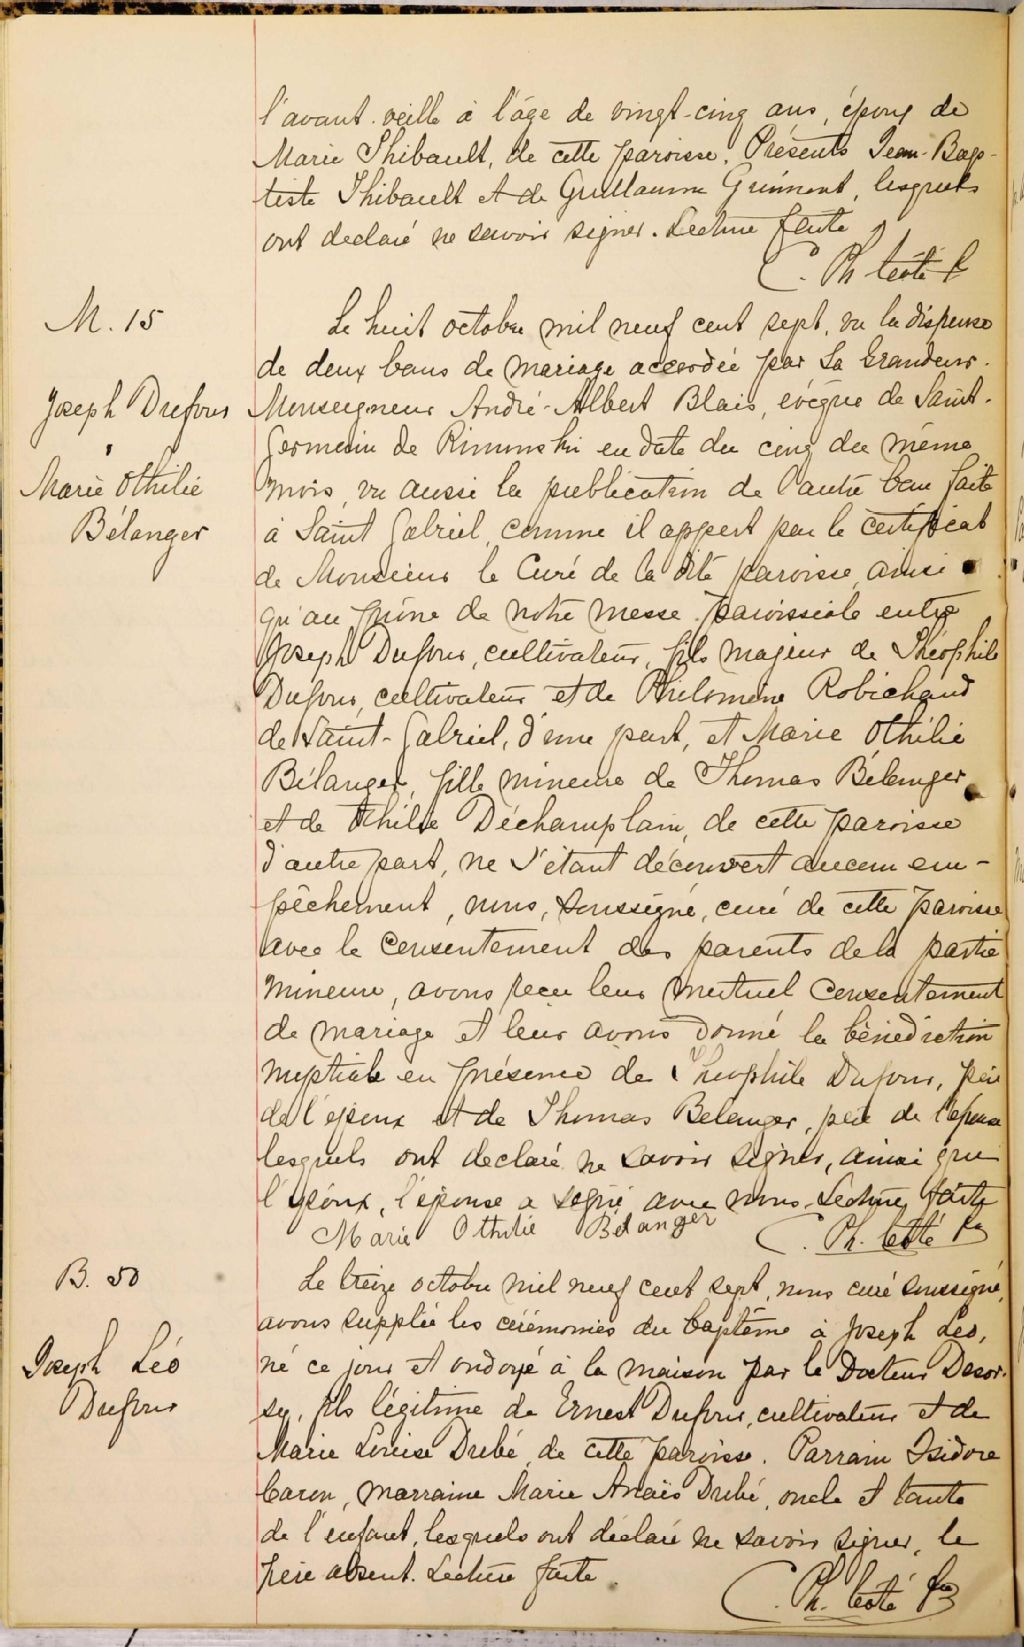 l'avant-veille à l'âge de vingt-cinq ans, époux de
Marie Thibault, de cette paroisse. Présents Jean-Bap-
tiste Thibault et de Guillaume Guimont, lesquels
ont declaré ne savoir signer. Lecture faite
C. Ph. Coté
M. 15
Joseph Dufour
Marie Othilie
Bélanger
Le huit octobre mil neuf cent sept, vu la dispense
de deux bans de mariage accordée par Sa Grandeur
Monseigneur André-Albert Blais, évêque de Saint-
Germain de Rimouski en date du cinq du même
mois, vu aussi la publication de l'autre ban faite
à Saint Gabriel, comme il appert par le certificat
de Monsieur le Curé de la dite paroisse, ainsi
qu'au prône de notre messe paroissiale entre
Joseph Dufour, cultivateur, fils majeur de Théophile
Dufour, cultivateur et de Philomène Robichaud
de Saint-Gabriel, d'une part, et Marie Othilie
Bélanger, fille mineure de Thomas Bélanger
et de Othilie Déchamplain, de cette paroisse
d'autre part, ne s'étant découvert aucun em-
pêchement, nous, soussigné, curé de cette paroisse
avec le consentement des parents de la partie
mineure, avons reçu leur mutuel consentement
de mariage et leur avons donné la bénédiction
nuptiale en présence de Théophile Dufour, père
de l'époux et de Thomas Bélanger, père de l'épouse
lesquels ont declaré ne savoir signer, ainsi que
l'époux, l'épouse a signé avec nous. Lecture faite
Marie Othilie Bélanger C. Ph. Coté
B. 50
Joseph Léo
Dufour
Le treize octobre mil neuf cent sept, nous curé soussigné,
avons supplée les cérémonies du baptême à Joseph Léo,
né ce jour et ondoyé à la maison par le Docteur
fils légitime de Ernest Dufour, cultivateur et de
Marie Louise Dubé, de cette paroisse. Parrain Isidore
Caron, marraine Marie Anaïs Dubé, oncle et tante
de l'enfant, lesquels ont déclaré ne savoir signer, le
père absent. Lecture faite.
C. Ph. Coté